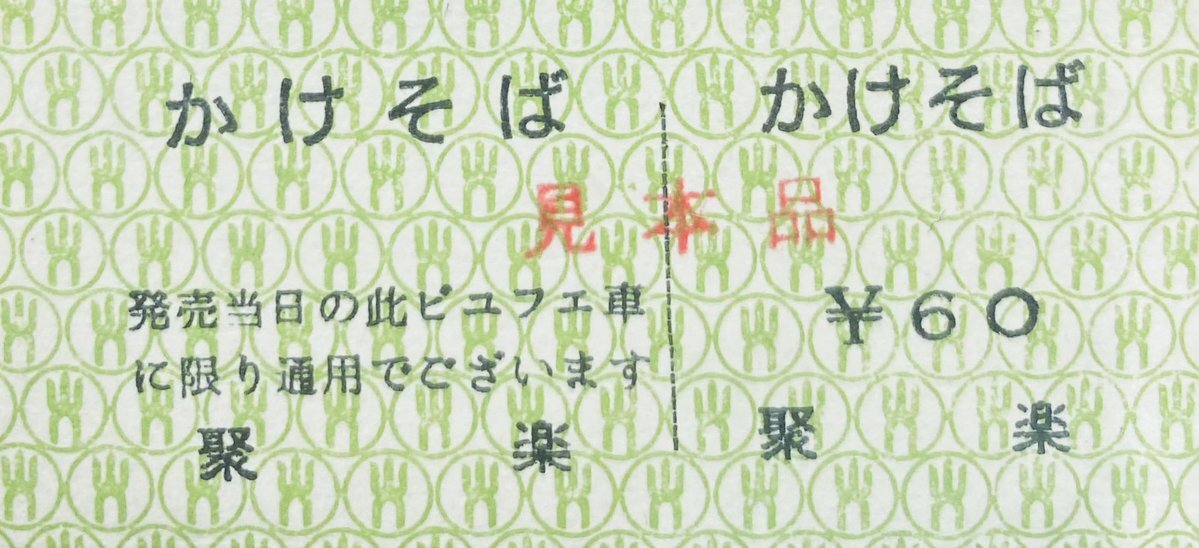 かけそば
発売当日の此ビユフエ車
に限り通用でございます
聚楽
かけそば
¥60
聚楽
見本品